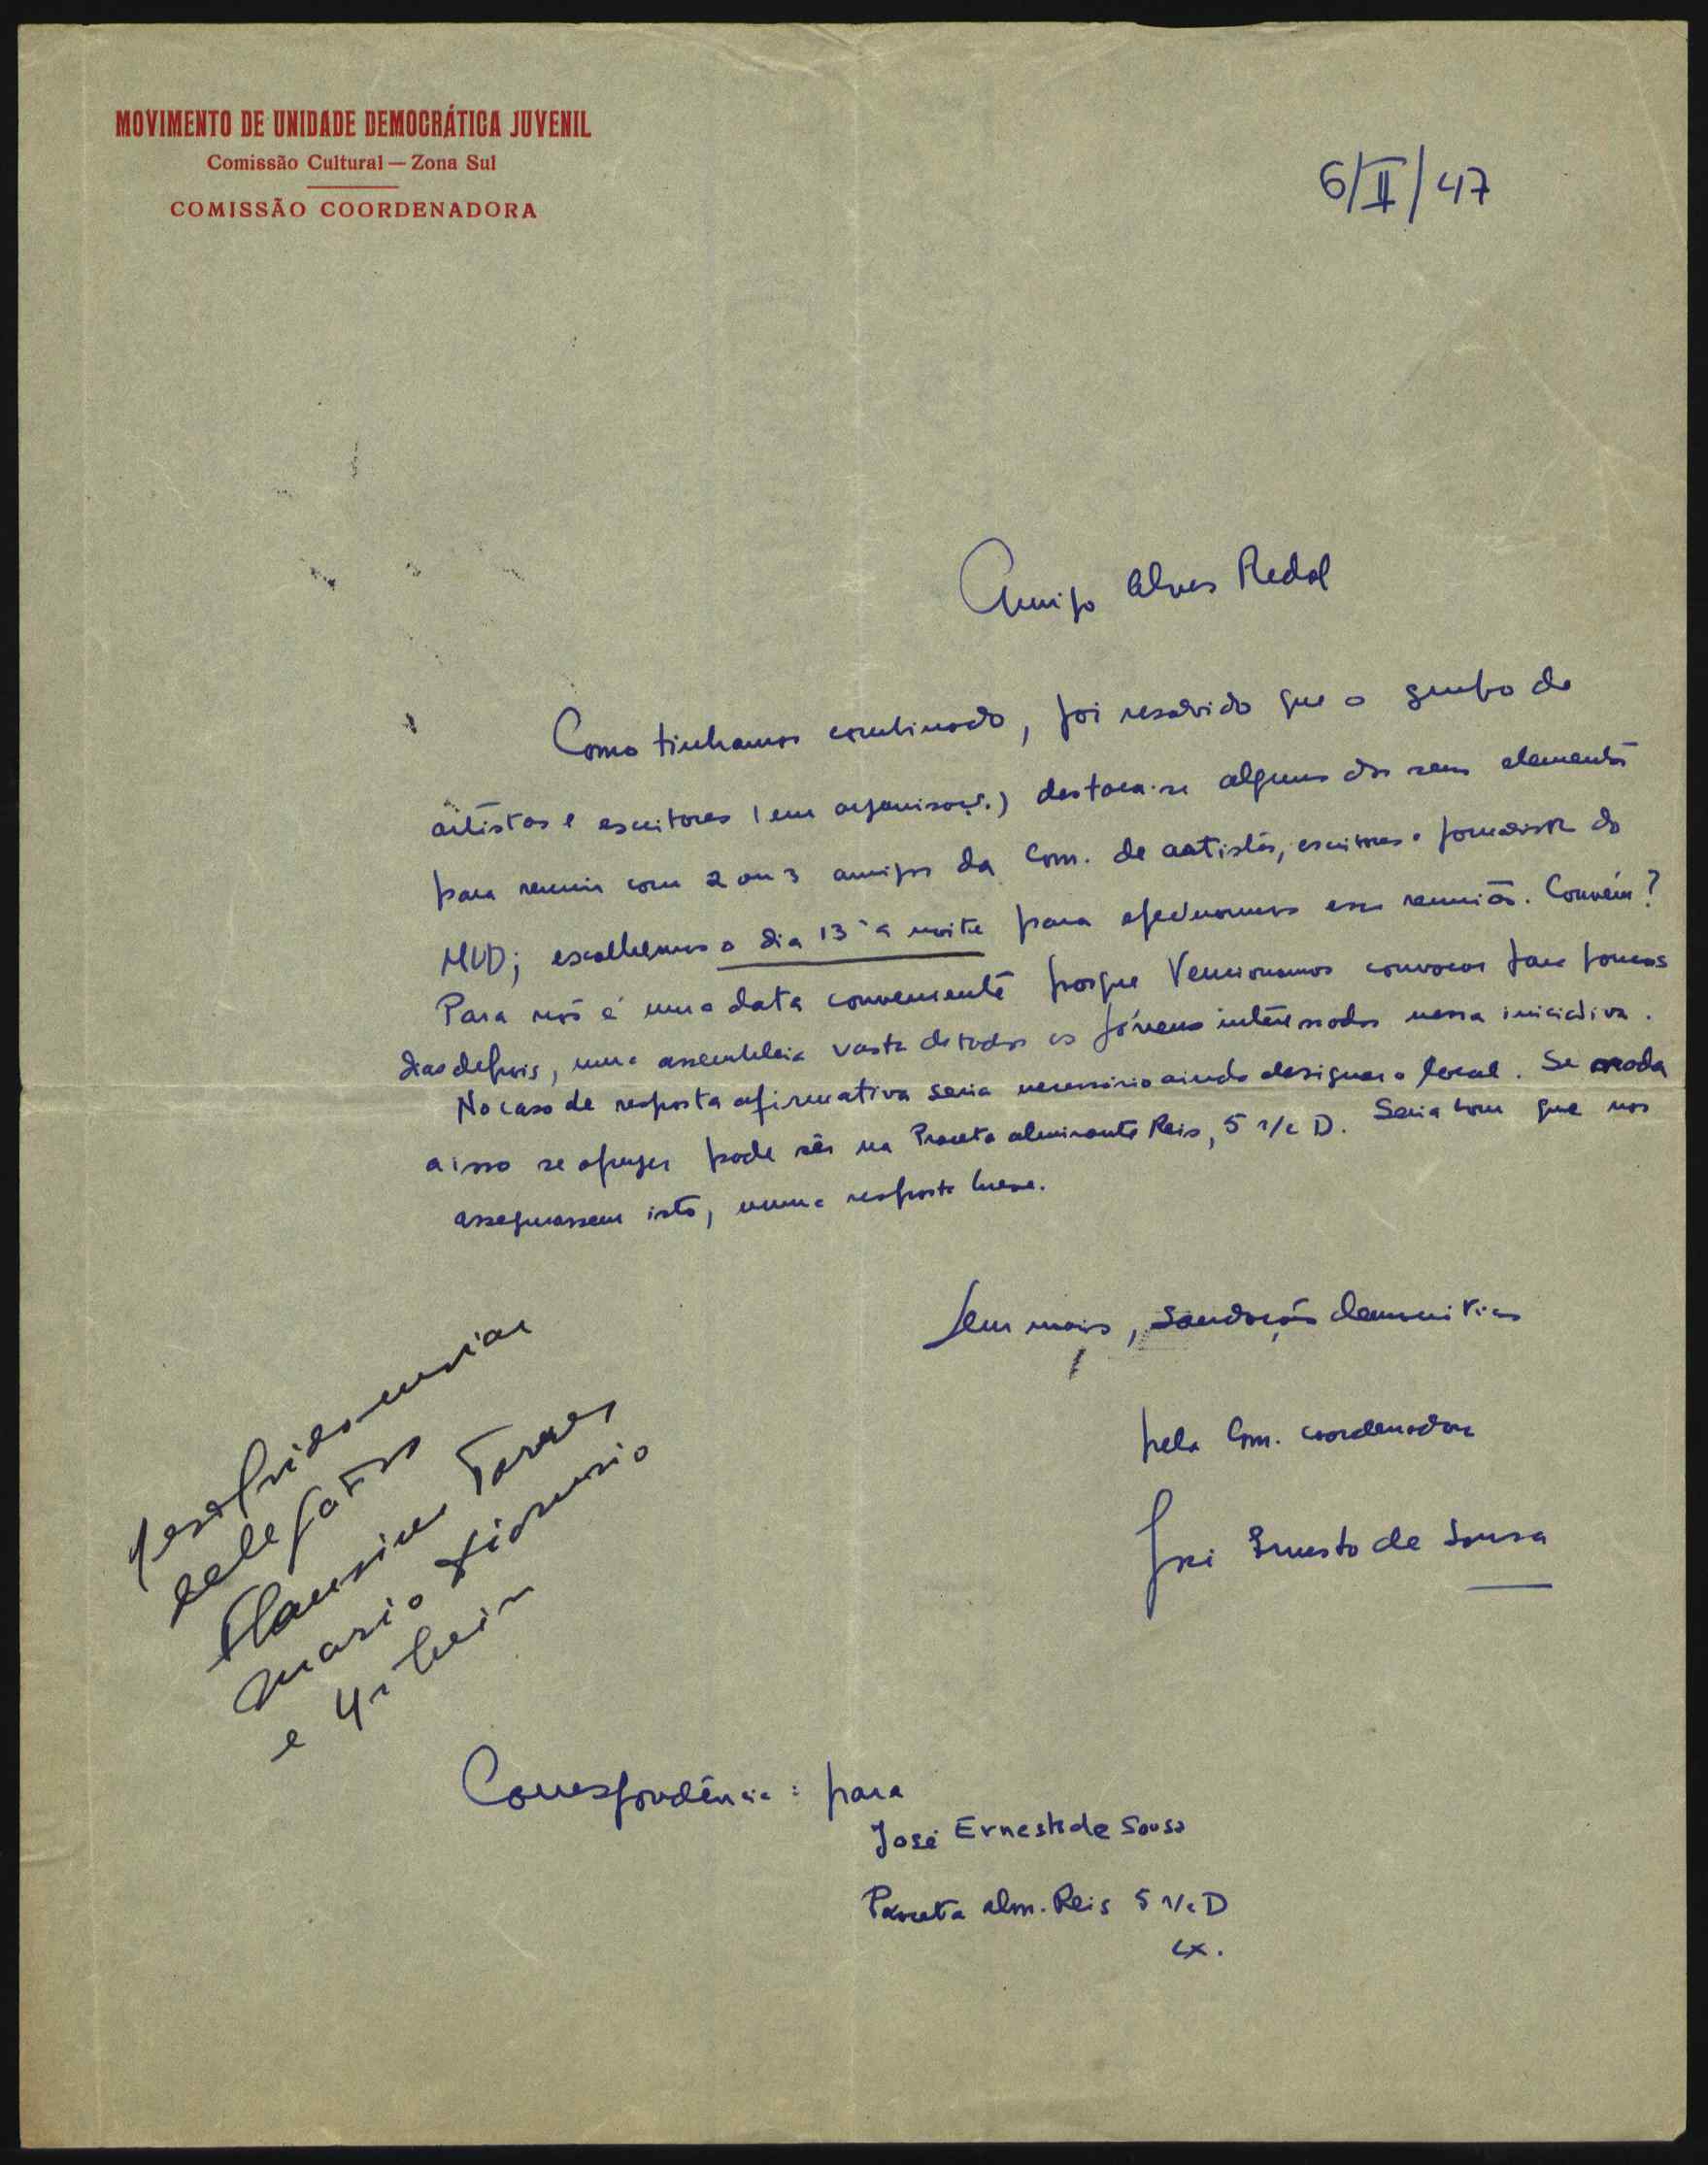 MOVIMENTO DE UNIDADE DEMOCRÁTICA JUVENIL
Comissão Cultural — Zona Sul
COMISSÃO COORDENADORA
6/II/47
Amigo Alves Redol
Como tinhamos combinado, foi resolvido que o grupo de
artistas e escritores (em organisaç.) destaca-se alguns dos seus elementos
para reunir com 2 ou 3 amigos da Com. de artistas, escritores e jornalistas do
MUD; escolhemos o dia 13 à noite para efectuarmos essa reunião. Convém?
Para nós é uma data conveniente porque tencionamos convocar para poucos
dias depois, uma assembleia vasta de todos os jóvens interessados nessa iniciativa.
No caso de resposta afirmativa seria necessário ainda designar o local. Se nada
a isso se opuzer pode sêr na Praceta Almirante Reis, 5 r/c D. Seria bom que nos
assegurassem isto, numa resposta breve.
Sem mais, Saudações democráticas
pela Com. coordenadora
José Ernesto de Sousa
delegados
Flausino Torres
Mario Dionisio
e
Correspondência: para
José Ernesto de Sousa
Praceta Alm. Reis 5 r/c D
Lx.